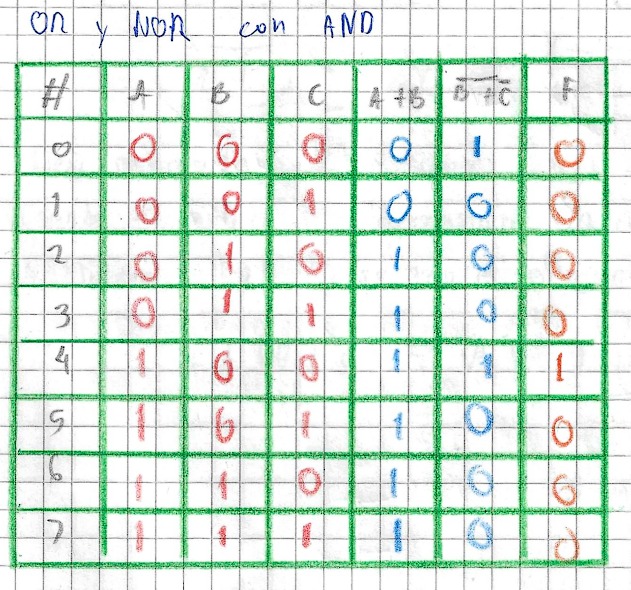 OR y NOR con AND
# A B C A+B B̅+̅C̅ F
0 0 0 0 0 1 0
1 0 0 1 0 0 0
2 0 1 0 1 0 0
3 0 1 1 1 0 0
4 1 0 0 1 1 1
5 1 0 1 1 0 0
6 1 1 0 1 0 0
7 1 1 1 1 0 0